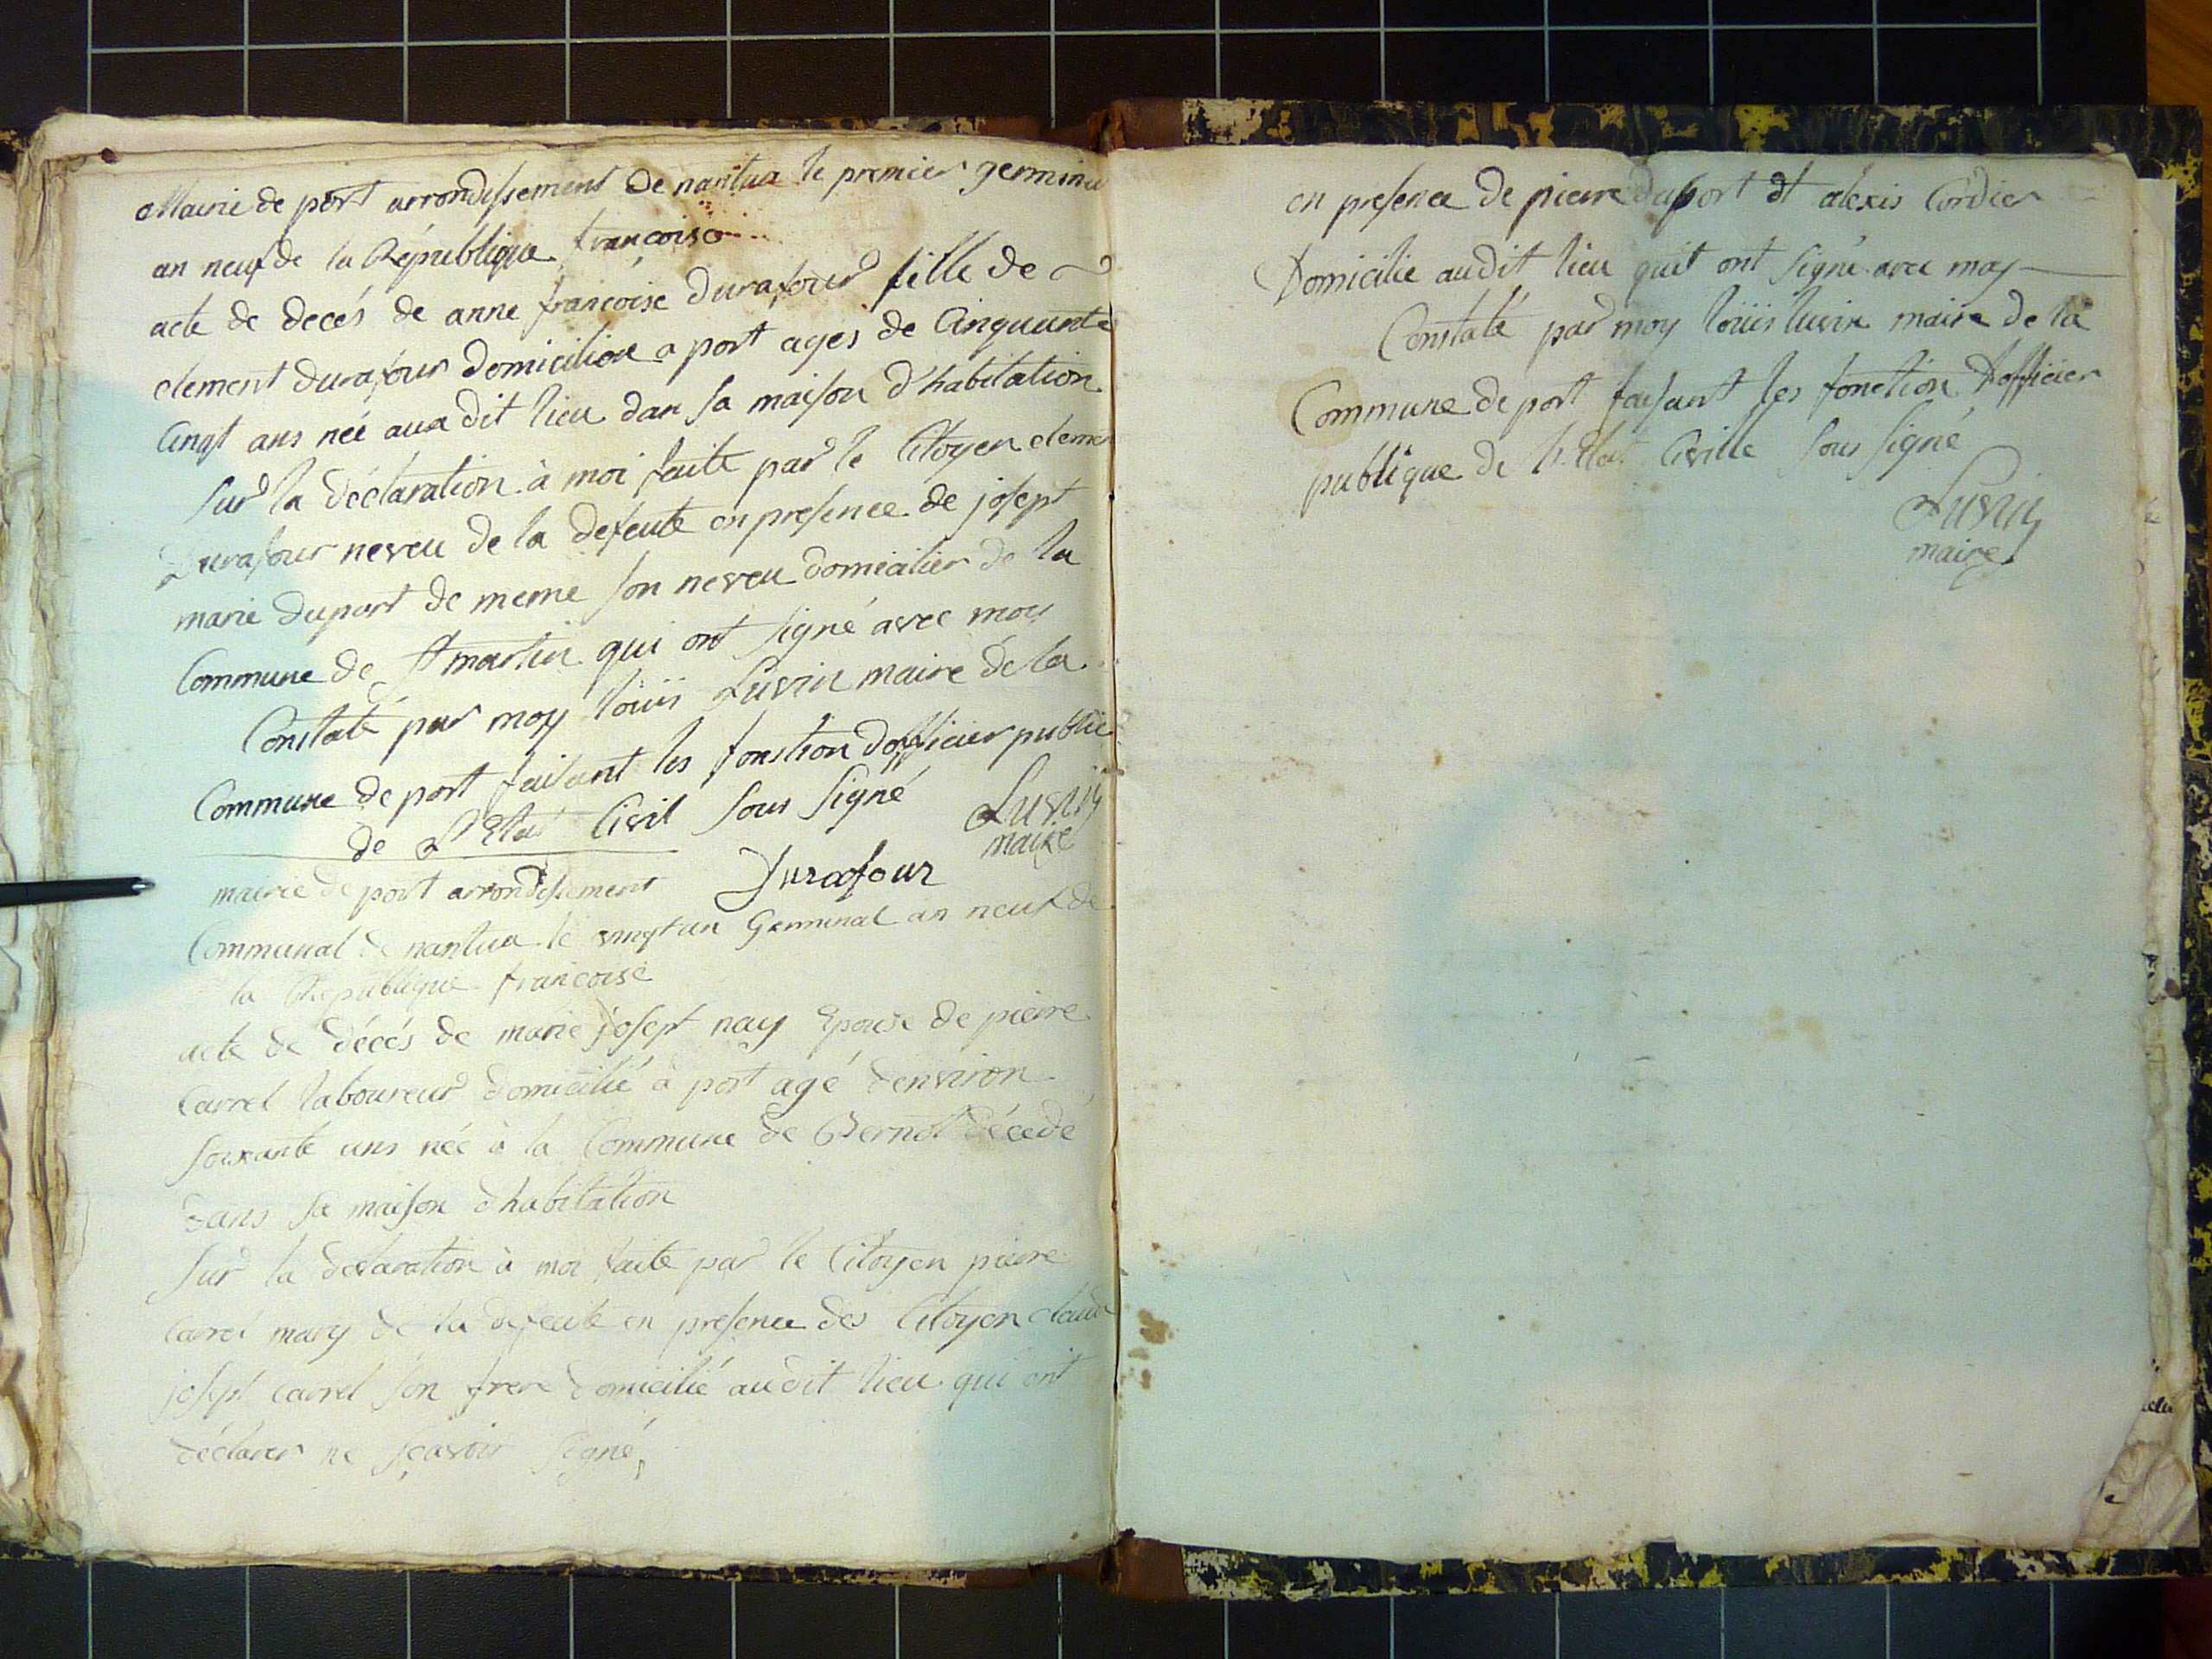 Mairie de port arrondissement de nantua le premier germina
an neuf de la République françoise
acte de decés de anne françoise durafour fille de
clement durafour domicilion a port agés de Cinquante
Cinqt ans neé au a dit lieu dan sa maison d'habitation
Sur la déclaration à moi faite par le Citoyen cleme
Durafour neveu de la defeute en presence de josept
marie duport de meme son neveu domicilier de la
Commune de St martin qui ont signé avec moy
Constaté par moy loüis Luvin maire de la
Commune de port faisant les fonstion d'officier public
de L'Etat Civil sous Signé
Luvin
maire
Durafour
mairie de port arrondissement
Communal de nantua le vingt un Germinal an neuf de
la République françoise
acte de décés de marie josept nay Epouse de pierre
Carrel laboureur domicilié à port agé denviron
soixante ans neé à la Commune de décedé
dans sa maison d'habitation
Sur la déclaration à moi faite par le Citoyen pierre
Carrel mary de la defeute en presence des Citoyen claud
josept carrel son frere domicilié audit lieu qui ont
déclarer ne scavoir signé,
en presence de pierre duport et alexis Cordier
Domicilie audit lieu quit ont signé avec moy
Constaté par moy loüis luvin maire de la
Commune de port faisant les fonction D'officier
publique de L'Etat Civille sous signé
Luvin
maire